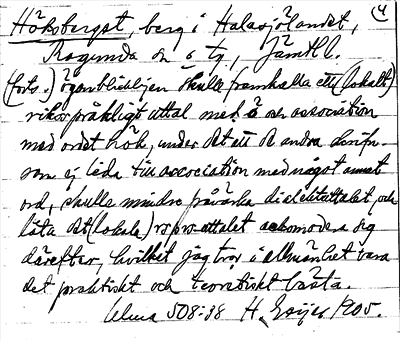 Höksberget, berg i Halasjölandet, (4
Ragunda sn o tg, Jämtl l.
(forts.) ögonblicksljen skulle framkalla ett (lokalt)
riksspråkligt uttal med ö och association
med ordet hök, under det att de andra skrifn.
som ej leda till association med något annat
ord, skulle mindre påverka dialektuttalet, och
låta det (lokala) rspr-uttalet ackomodera sig
därefter, hvilket jag tror i allmänhet vara
det praktiskt och teoretiskt bästa.
Ulma 508:38 H. Geijer 1905.